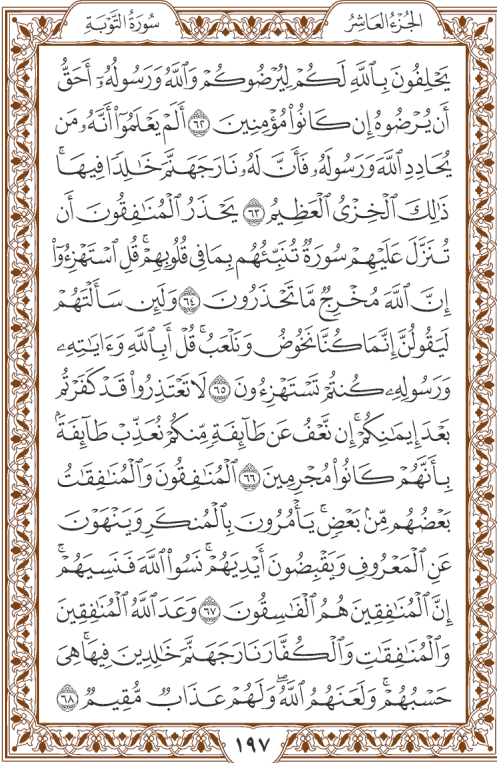 الجُزْءُ العَاشِرُ
سُورَةُ التَّوْبَةِ
يَحْلِفُونَ بِٱللَّهِ لَكُمْ لِيُرْضُوكُمْ وَٱللَّهُ وَرَسُولُهُۥٓ أَحَقُّ
أَن يُرْضُوهُ إِن كَانُوا۟ مُؤْمِنِينَ ٦٢ أَلَمْ يَعْلَمُوٓا۟ أَنَّهُۥ مَن
يُحَادِدِ ٱللَّهَ وَرَسُولَهُۥ فَأَنَّ لَهُۥ نَارَ جَهَنَّمَ خَـٰلِدًا فِيهَا ۚ
ذَٰلِكَ ٱلْخِزْىُ ٱلْعَظِيمُ ٦٣ يَحْذَرُ ٱلْمُنَـٰفِقُونَ أَن
تُنَزَّلَ عَلَيْهِمْ سُورَةٌ تُنَبِّئُهُم بِمَا فِى قُلُوبِهِمْ ۚ قُلِ ٱسْتَهْزِءُوٓا۟
إِنَّ ٱللَّهَ مُخْرِجٌ مَّا تَحْذَرُونَ ٦٤ وَلَئِن سَأَلْتَهُمْ
لَيَقُولُنَّ إِنَّمَا كُنَّا نَخُوضُ وَنَلْعَبُ ۚ قُلْ أَبِٱللَّهِ وَءَايَـٰتِهِۦ
وَرَسُولِهِۦ كُنتُمْ تَسْتَهْزِءُونَ ٦٥ لَا تَعْتَذِرُوا۟ قَدْ كَفَرْتُم
بَعْدَ إِيمَـٰنِكُمْ ۚ إِن نَّعْفُ عَن طَآئِفَةٍ مِّنكُمْ نُعَذِّبْ طَآئِفَةًۢ
بِأَنَّهُمْ كَانُوا۟ مُجْرِمِينَ ٦٦ ٱلْمُنَـٰفِقُونَ وَٱلْمُنَـٰفِقَـٰتُ
بَعْضُهُم مِّنۢ بَعْضٍ ۚ يَأْمُرُونَ بِٱلْمُنكَرِ وَيَنْهَوْنَ
عَنِ ٱلْمَعْرُوفِ وَيَقْبِضُونَ أَيْدِيَهُمْ ۚ نَسُوا۟ ٱللَّهَ فَنَسِيَهُمْ ۚ
إِنَّ ٱلْمُنَـٰفِقِينَ هُمُ ٱلْفَـٰسِقُونَ ٦٧ وَعَدَ ٱللَّهُ ٱلْمُنَـٰفِقِينَ
وَٱلْمُنَـٰفِقَـٰتِ وَٱلْكُفَّارَ نَارَ جَهَنَّمَ خَـٰلِدِينَ فِيهَا ۚ هِىَ
حَسْبُهُمْ ۚ وَلَعَنَهُمُ ٱللَّهُ ۖ وَلَهُمْ عَذَابٌ مُّقِيمٌ ٦٨
١٩٧